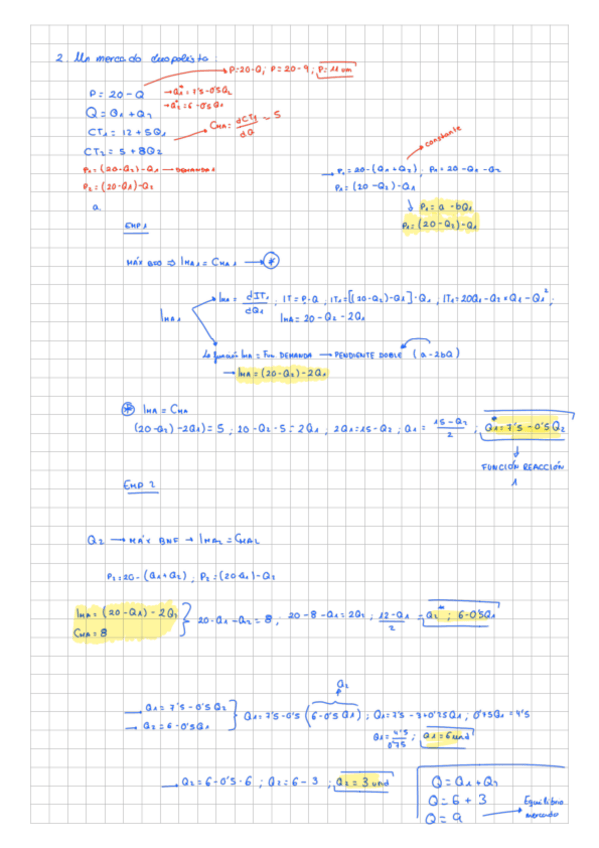 2. Un mercado duopolista
P = 20 - Q → P=20-Q; P=20-9; P=11 um
Q = Q1 + Q2 → Q1* = 7'5 - 0'5Q2
→ Q2* = 6 - 0'5Q1
CT1 = 12 + 5Q1 → CMA = dCT1/dQ = 5
CT2 = 5 + 8Q2
P1 = (20-Q2) - Q1 → DEMANDA 1
P2 = (20-Q1) - Q2
a
constante
→ P1 = 20 - (Q1 + Q2), P1 = 20 - Q1 - Q2
P1 = (20 - Q2) - Q1
↓ P1 = a - bQ1
P1 = (20 - Q2) - Q1
EMP 1
MÁX BFO ⇒ IMA1 = CMA1 → *
IMA1
IMA = dIT1/dQ1 ; IT = P·Q , IT1 = [(20-Q2)-Q1]·Q1 , IT1 = 20Q1 - Q2×Q1 - Q1² ;
IMA = 20 - Q2 - 2Q1
La función IMA = Fun. DEMANDA → PENDIENTE DOBLE (a - 2bQ)
→ IMA = (20-Q2) - 2Q1
* IMA = CMA
(20-Q2) - 2Q1) = 5 ; 20 - Q2 - 5 = 2Q1 , 2Q1 = 15 - Q2 ; Q1 = 15-Q2/2 ; Q1* = 7'5 - 0'5Q2
↓
FUNCIÓN REACCIÓN
1
EMP 2
Q2 → MÁX BNF → IMA2 = CMA2
P2 = 20 - (Q1+Q2) , P2 = (20-Q1) - Q2
IMA = (20-Q1) - 2Q2
CMA = 8
} 20-Q1-Q2 = 8 , 20-8-Q1 = 2Q2 ; 12-Q1/2 = Q2* ; 6-0'5Q1
Q2
→ Q1 = 7'5 - 0'5Q2
→ Q2 = 6 - 0'5Q1
} Q1 = 7'5 - 0'5 (6 - 0'5Q1) ; Q1 = 7'5 - 3 + 0'25Q1 , 0'75Q1 = 4'5
Q1 = 4'5/0'75 ; Q1 = 6 und
→ Q2 = 6 - 0'5·6 ; Q2 = 6 - 3 ; Q2 = 3 und
Q = Q1 + Q2
Q = 6 + 3
Q = 9 → Equilibrio mercado